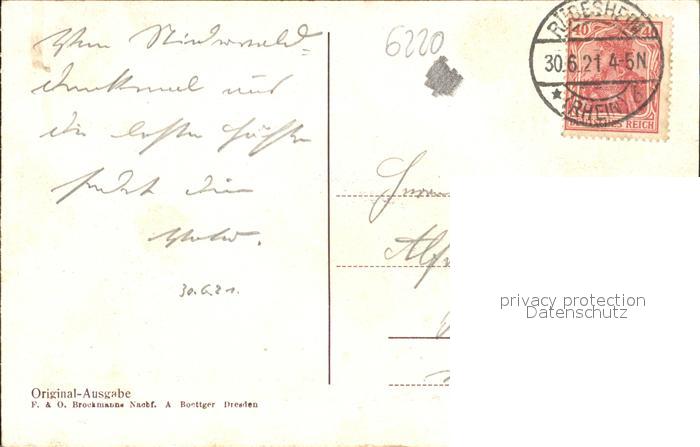 Vom Niederwald=
denkmal aus
die besten Grüße
sendet Dein
Vater.
30.6.21.
6220
RÜDESHEIM
30.6.21 4-5N
* (RHEIN) b
40 40
DEUTSCHES REICH
Herrn
Alfr
privacy protection
Datenschutz
Original-Ausgabe
F. & O. Brockmanns Nachf. A Boettger Dresden